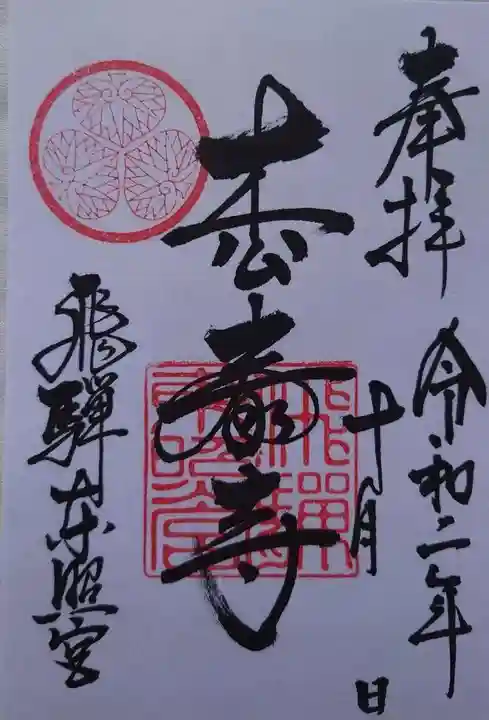 奉拝
令和二年
十月
日
枩 寺
飛騨東照宮
飛騨
東照宮